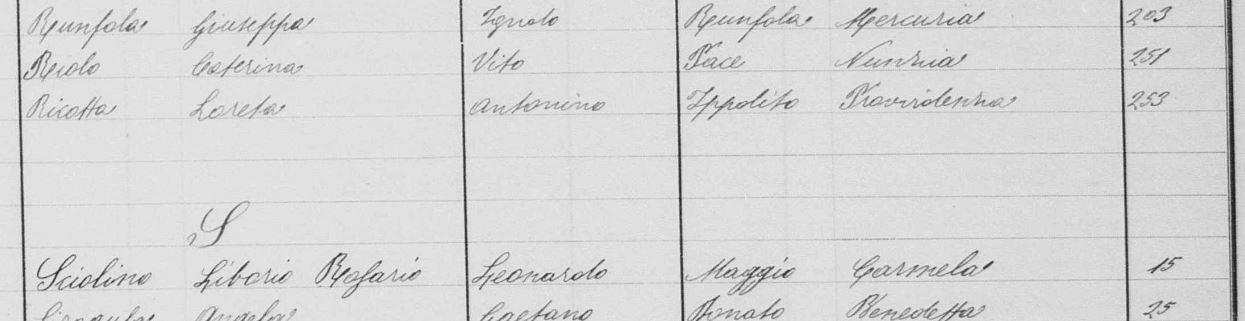 Runfola Giuseppa Ignolo Runfola Mercuria 203
Riolo Caterina Vito Pace Nunzia 251
Ricotta Loreta Antonino Ippolito Provvidenza 253
S
Sciolino Liborio Rosario Leonardo Maggio Carmela 15
Angela Gaetano Donato Benedetta 25